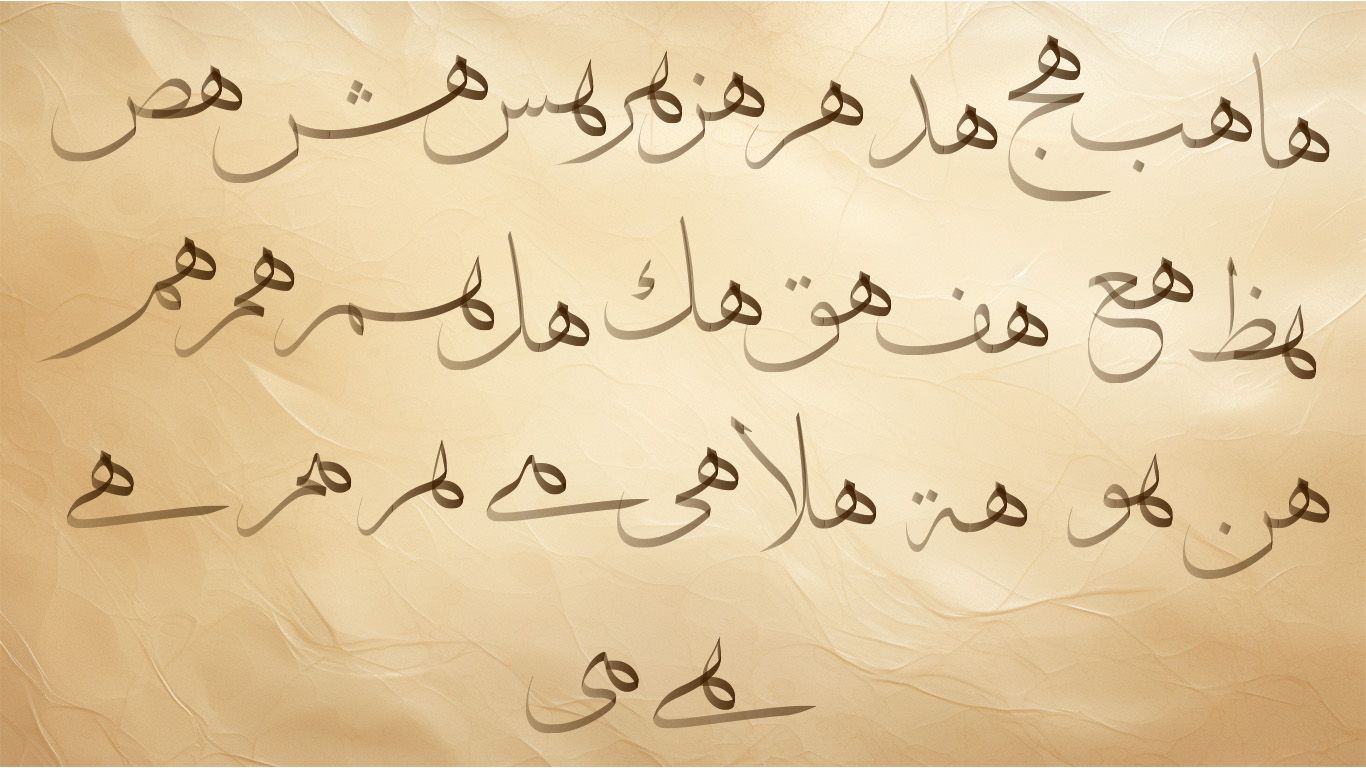 ها هب هج هد هر هز لهر لهس هش هص
لهظ هع هف هق هك هل لهم هم هم
هن لهو هة هلأ هى مے لهر مر هے
لهے مى